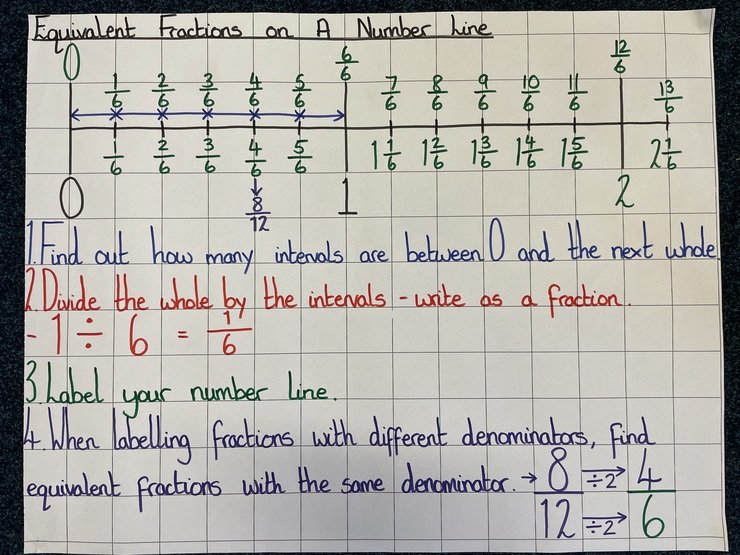 Equivalent Fractions on A Number Line
0 1/6 2/6 3/6 4/6 5/6 6/6 7/6 8/6 9/6 10/6 11/6 12/6 13/6
0 1/6 2/6 3/6 4/6 5/6 1 1 1/6 1 2/6 1 3/6 1 4/6 1 5/6 2 2 1/6
↓
8/12
1. Find out how many intervals are between 0 and the next whole
2. Divide the whole by the intervals - write as a fraction.
- 1 ÷ 6 = 1/6
3. Label your number line.
4. When labelling fractions with different denominators, find
equivalent fractions with the same denominator. → 8 ÷2→ 4
12 ÷2→ 6